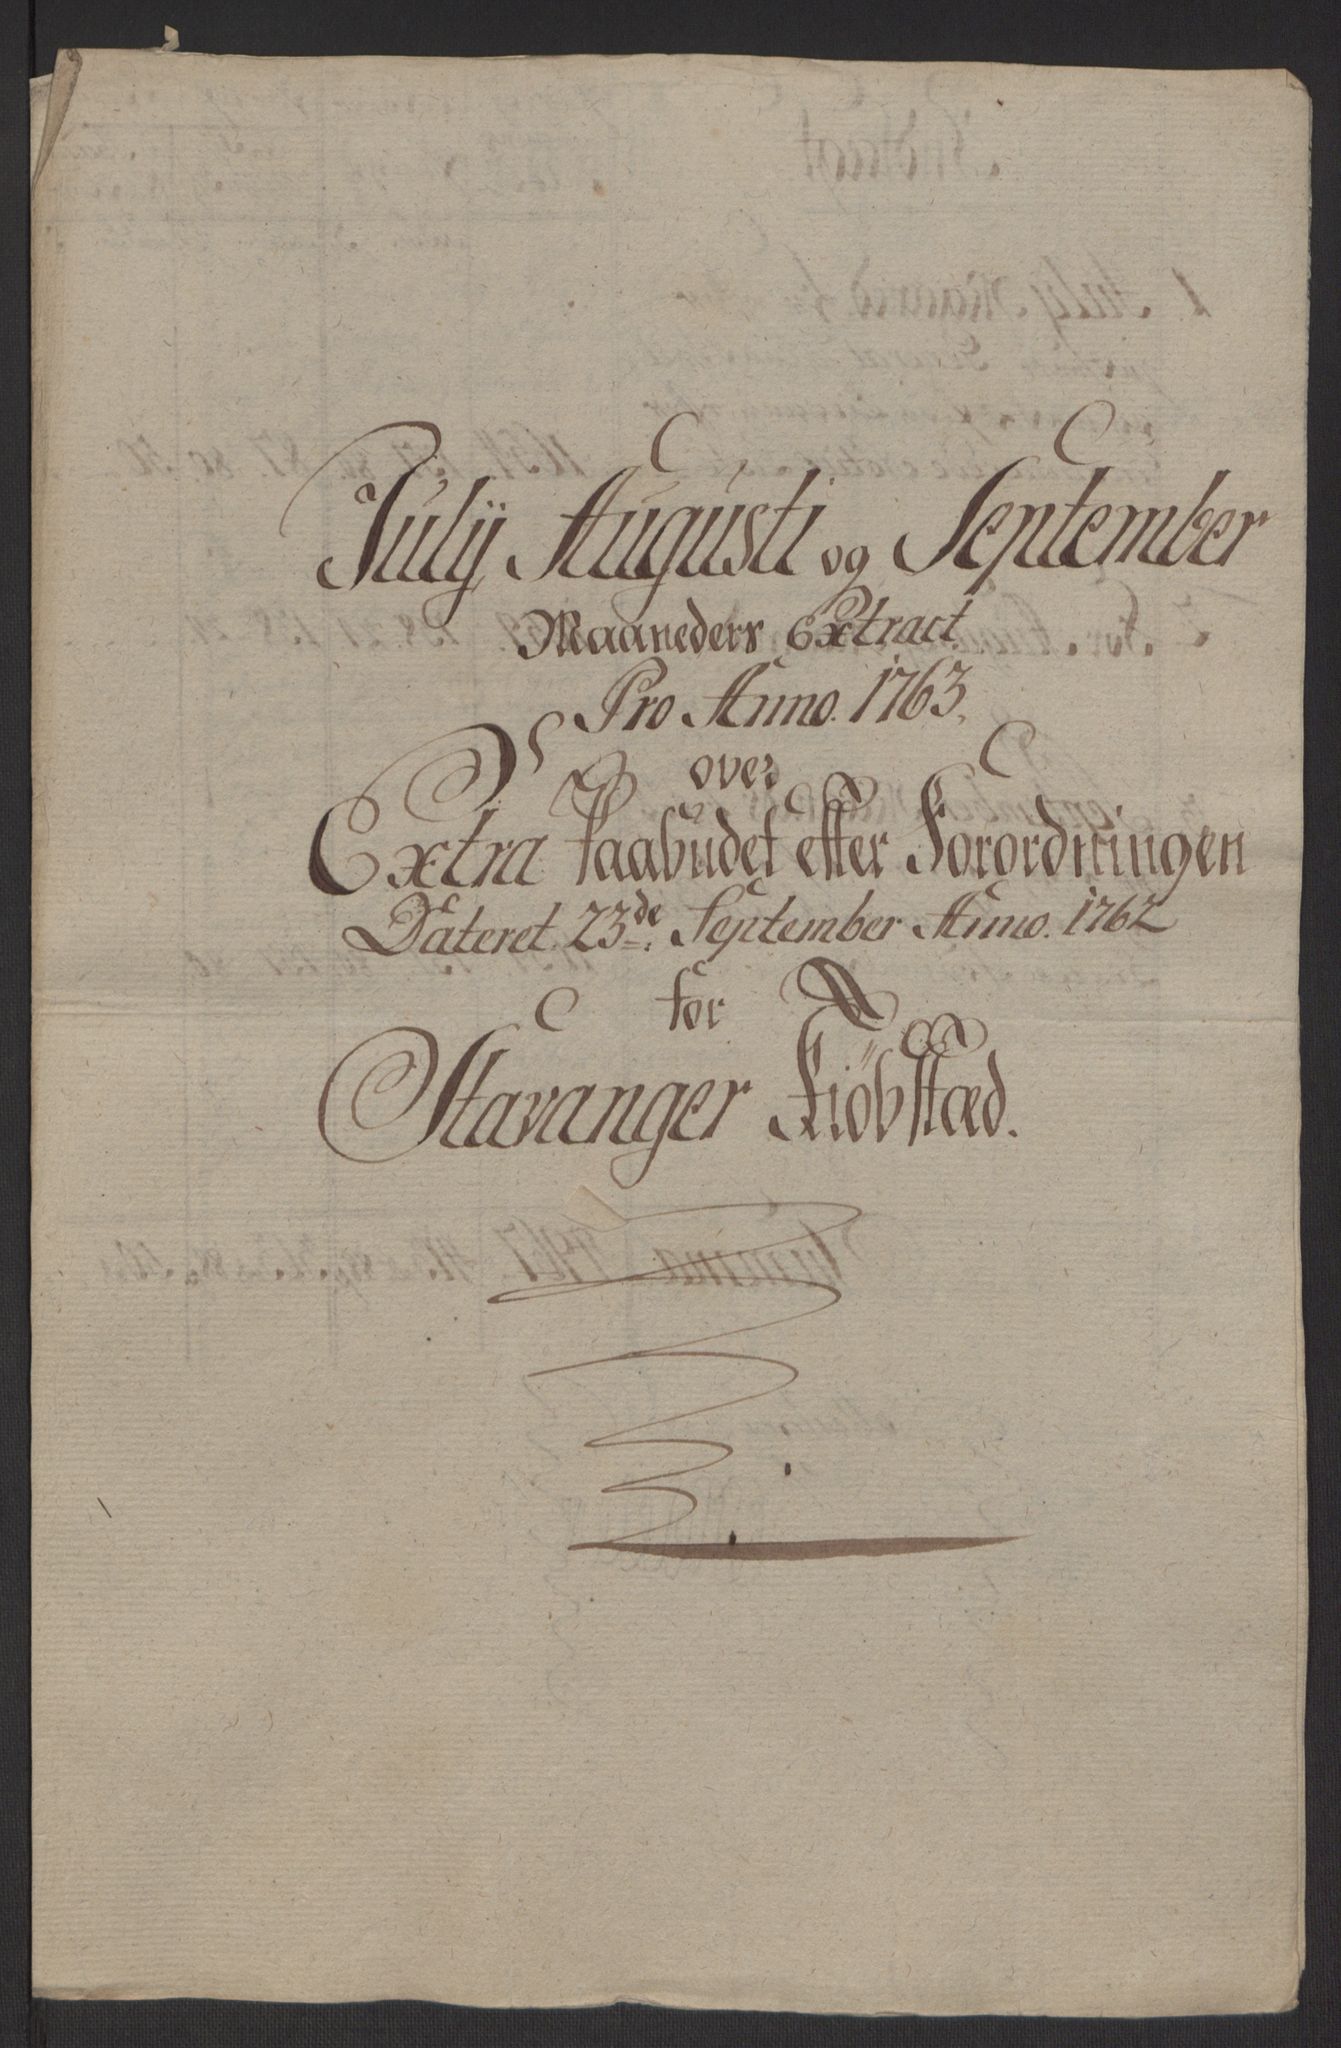 Julij, Augusti og September
Maaneders Extract
Pro Anno. 1763.
over
Extra Paabudet efter Forordningen
Dateret. 23de: September Anno. 1762
for
Stavanger Kiöbstæd.